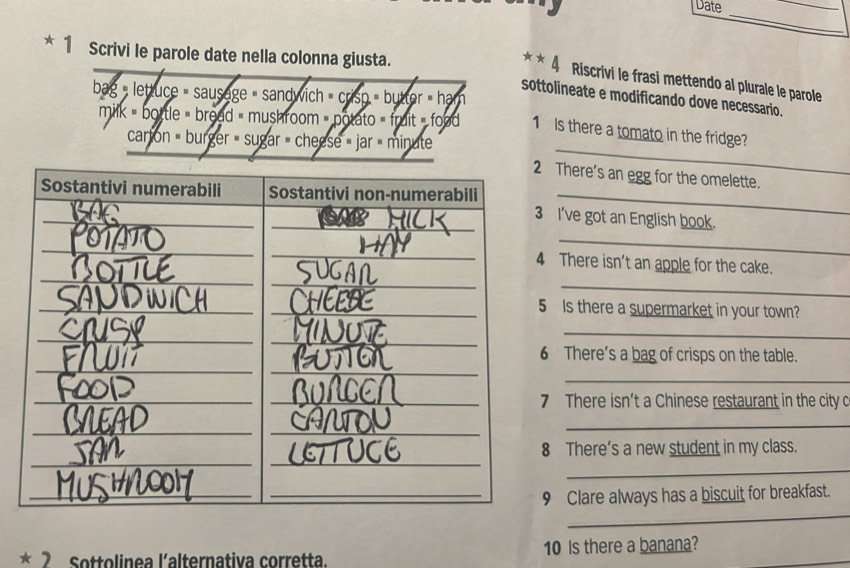 any
Date
★ 1 Scrivi le parole date nella colonna giusta.
bag ▪ lettuce ▪ sausage ▪ sandwich ▪ crisp ▪ butter ▪ ham
milk ▪ bottle ▪ bread ▪ mushroom ▪ potato ▪ fruit ▪ food
carton ▪ burger ▪ sugar ▪ cheese ▪ jar ▪ minute
Sostantivi numerabili
BAG
POTATO
BOTTLE
SANDWICH
CRISP
FRUIT
FOOD
BREAD
JAR
MUSHROOM
Sostantivi non-numerabili
MILK
HAM
SUGAR
CHEESE
MINUTE
BUTTER
BURGER
CARTON
LETTUCE
★ 2 Sottolinea l'alternativa corretta.
★★ 4 Riscrivi le frasi mettendo al plurale le parole
sottolineate e modificando dove necessario.
1 Is there a tomato in the fridge?
2 There's an egg for the omelette.
3 I've got an English book.
4 There isn't an apple for the cake.
5 Is there a supermarket in your town?
6 There's a bag of crisps on the table.
7 There isn't a Chinese restaurant in the city c
8 There's a new student in my class.
9 Clare always has a biscuit for breakfast.
10 Is there a banana?